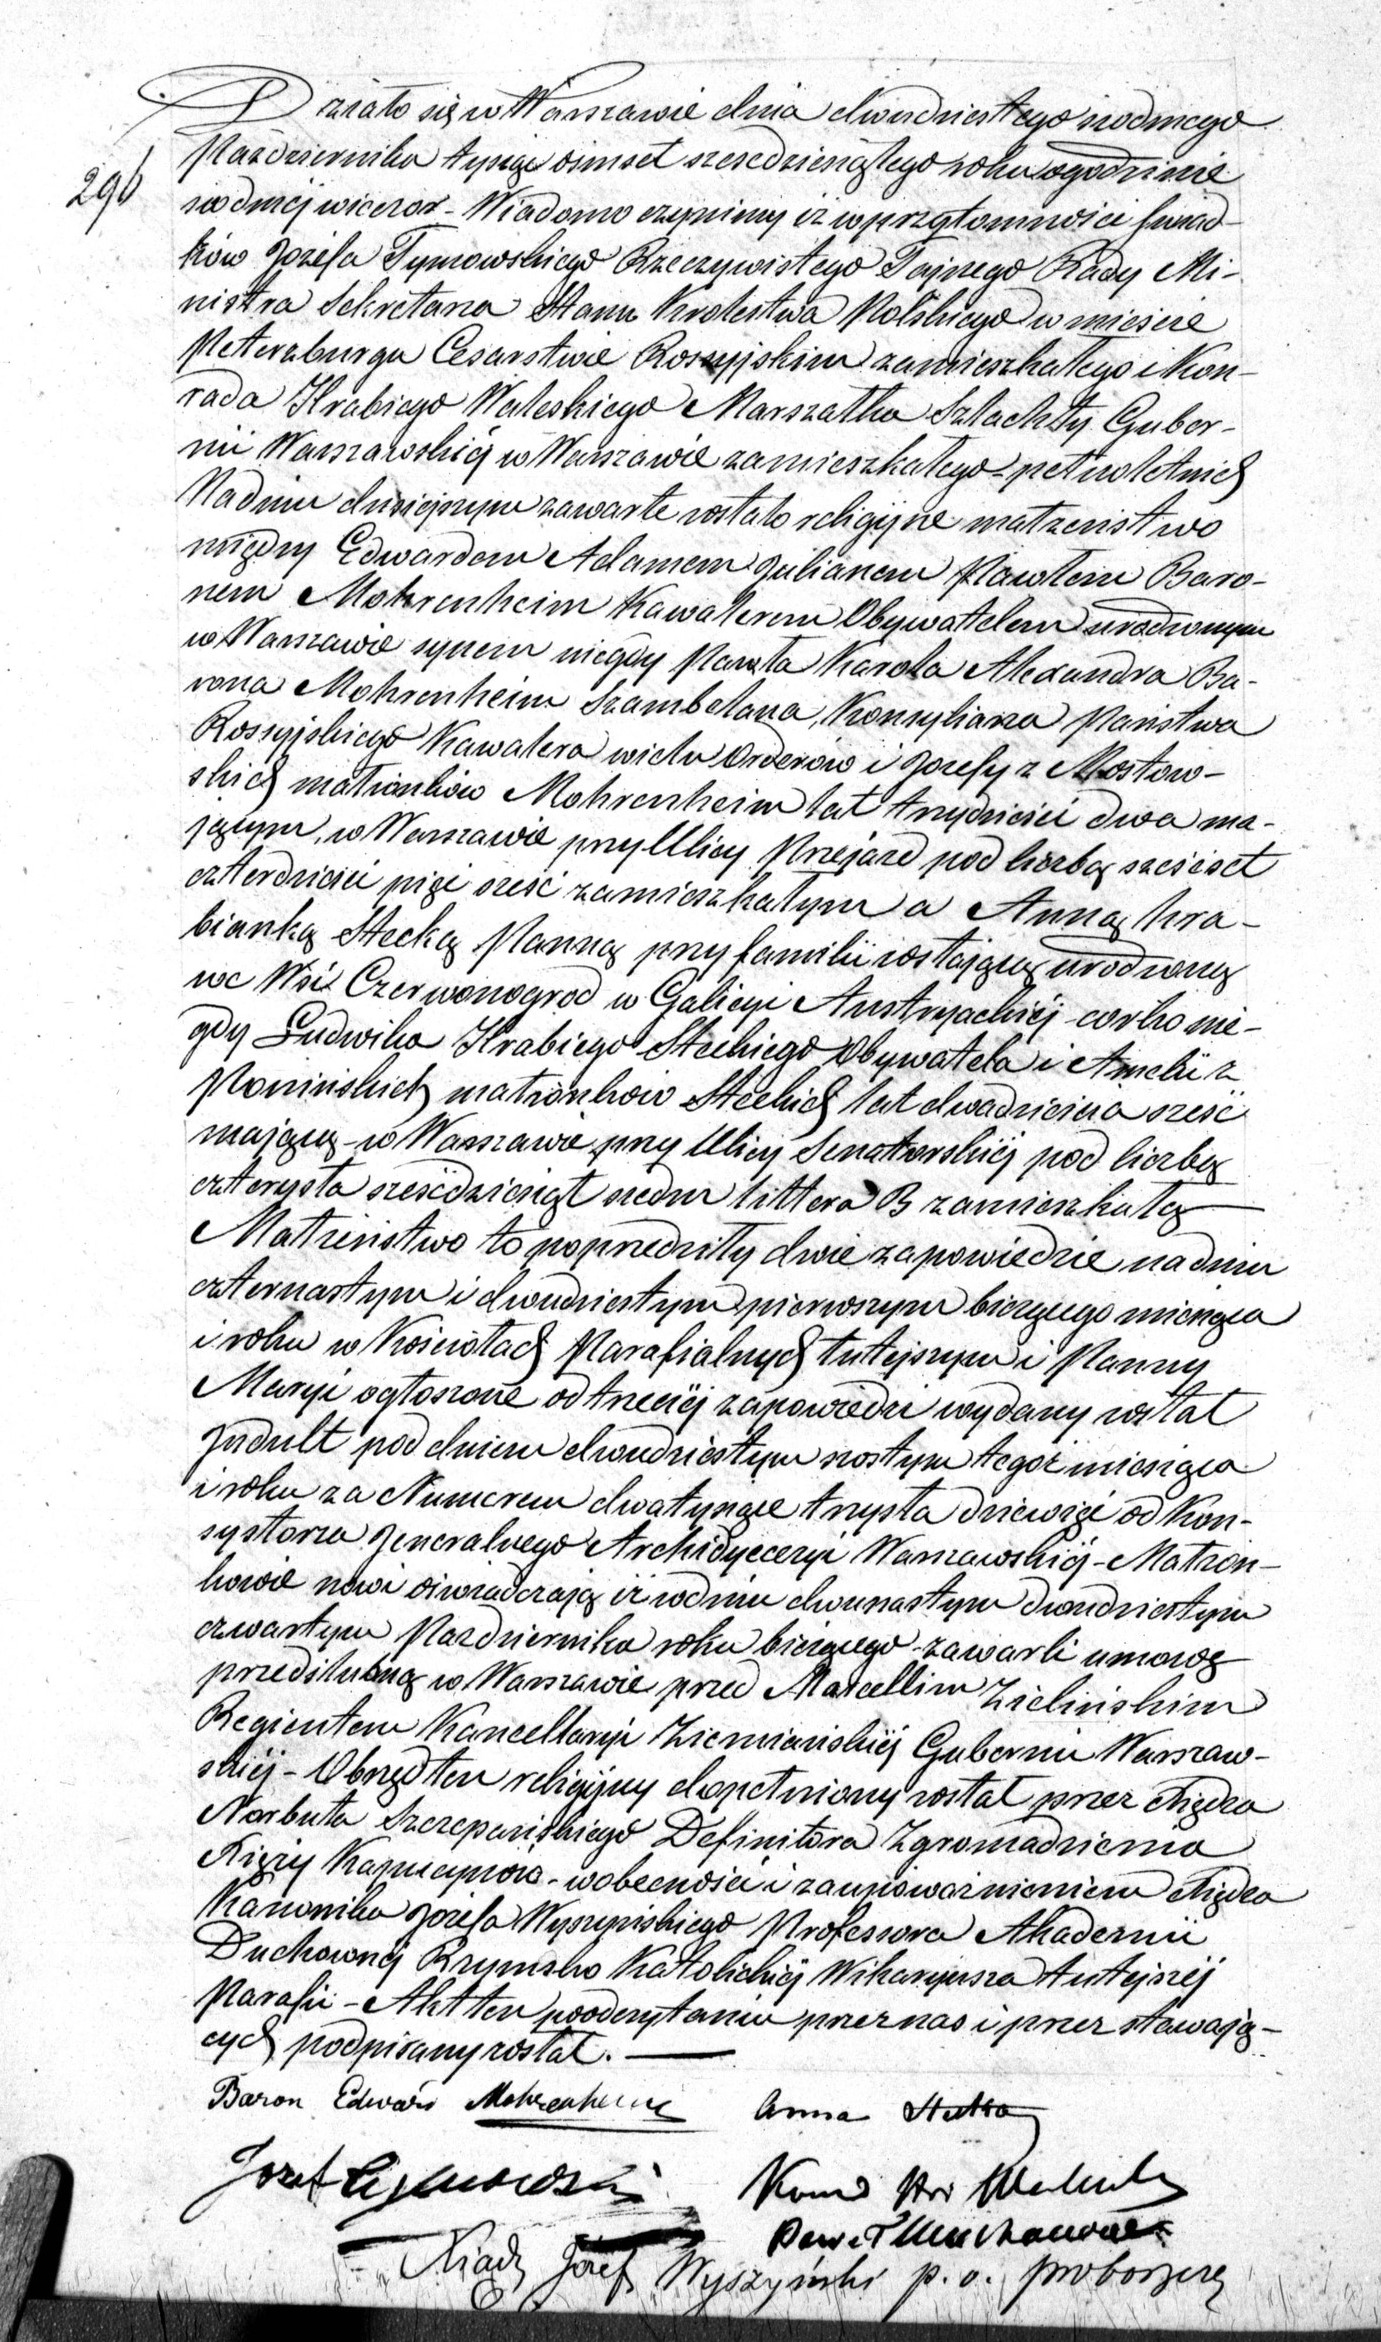 296
Działo się w Warszawie dnia dwudziestego siodmego
Października tysiąc osimset szescdziesiątego roku o godzinie
siodmej wieczor - Wiadomo czynimy iż w przytomności świad-
ków Jozefa Tymowskiego Rzeczywistego Tajnego Rady Mi-
nistra Sekretarza Stanu Krolestwa Polskiego w miescie
Petersburgu Cesarstwie Rossyjskim zamieszkałego i Kon-
rada Hrabiego Waleskiego Marszałka Szlachty Guber-
nii Warszawskiej w Warszawie zamieszkałego - pełnoletnich
Na dniu dzisiejszym zawarte zostało religijne małżeństwo
między Edwardem Adamem Julianem Pawłem Baro-
nem Mohrenheim Kawalerem Obywatelem urodzonym
w Warszawie synem niegdy Pawła Karola Alexandra Ba-
rona Mohrenheim Szambelana, Konsyliarza Państwa
Rossyjskiego Kawalera wielu Orderów i Jozefy z Mostow-
skich małżonków Mohrenheim lat trzydzieści dwa ma-
jącym, w Warszawie przy Ulicy Przejazd pod liczbą sześćset
czterdzieści pięć sześć zamieszkałym a Anną hra-
bianką Stecką Panną przy familii zostającą urodzoną
we Wsi Czerwonogrod w Galicyi Austryackiej corko nie-
gdy Ludwika Hrabiego Steckiego Obywatela i Amelii z
Ponińskich małżonków Steckich lat dwadzieścia sześć
mającą - w Warszawie przy Ulicy Senatorskiej pod liczbą
czterysta sześćdziesiąt siedm littera B zamieszkałą
Małżeństwo to poprzedziły dwie zapowiedzie na dniu
czternastym i dwudziestym pierwszym bieżącego miesiąca
i roku w Kościołach Parafialnych tutejszym i Panny
Maryi ogłoszone od trzeciej zapowiedzi wydany został
Jndult pod dniem dwudziestym szostym tegoż miesiąca
i roku za Numerem dwa tysiące trzysta dziewięć od Kon-
systorza Jeneralnego Archidyecezyi Warszawskiej - Małżon-
kowie nowi oświadczają iż w dniu dwunastym dwudziestym
czwartym Października roku bieżącego zawarli umowę
przedślubną w Warszawie przed Marcellim Zielińskim
Regientem Kancellaryi Ziemiańskiej Gubernii Warszaw-
skiej - Obrzęd ten religijny dopełniony został przez Xiędza
Norberta Szczepańskiego Definitora Zgromadzenia
Xięży Kapucynów - w obecności i za upoważnieniem Xiędza
Kanonika Jozefa Wyszyńskiego Professora Akademii
Duchownej Rzymsko Katolickiej Wikaryusza tutejszej
Parafii - Akt ten po odczytaniu przez nas i przez stawają-
cych podpisany został.
Baron Edward Mohrenheim Anna Stecka
Jozef Tymowski Konrad Hr Waleski
Paweł Muchanow
Xiądz Józef Wyszyński p. o. proboszcza